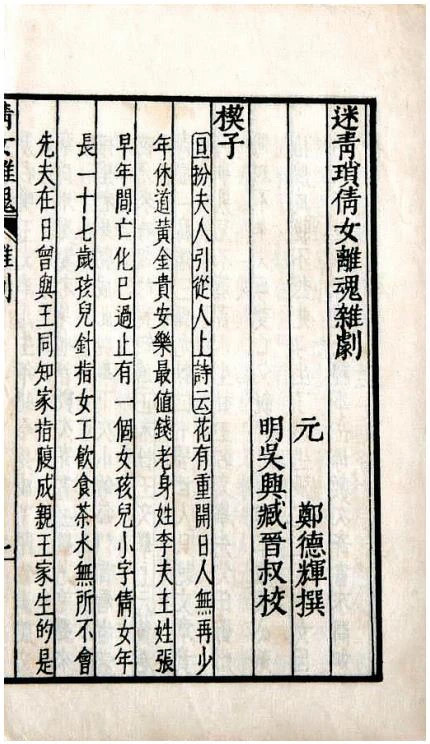 迷青瑣倩女離魂雜劇
元　鄭德輝撰
明吳興臧晉叔校
楔子
旦扮夫人引從人上詩云花有重開日人無再少
年休道黃金貴安樂最值錢老身姓李夫主姓張
早年間亡化已過止有一個女孩兒小字倩女年
長一十七歲孩兒針指女工飲食茶水無所不會
先夫在日曾與王同知家指腹成親王家生的是
倩女離魂　雜劇